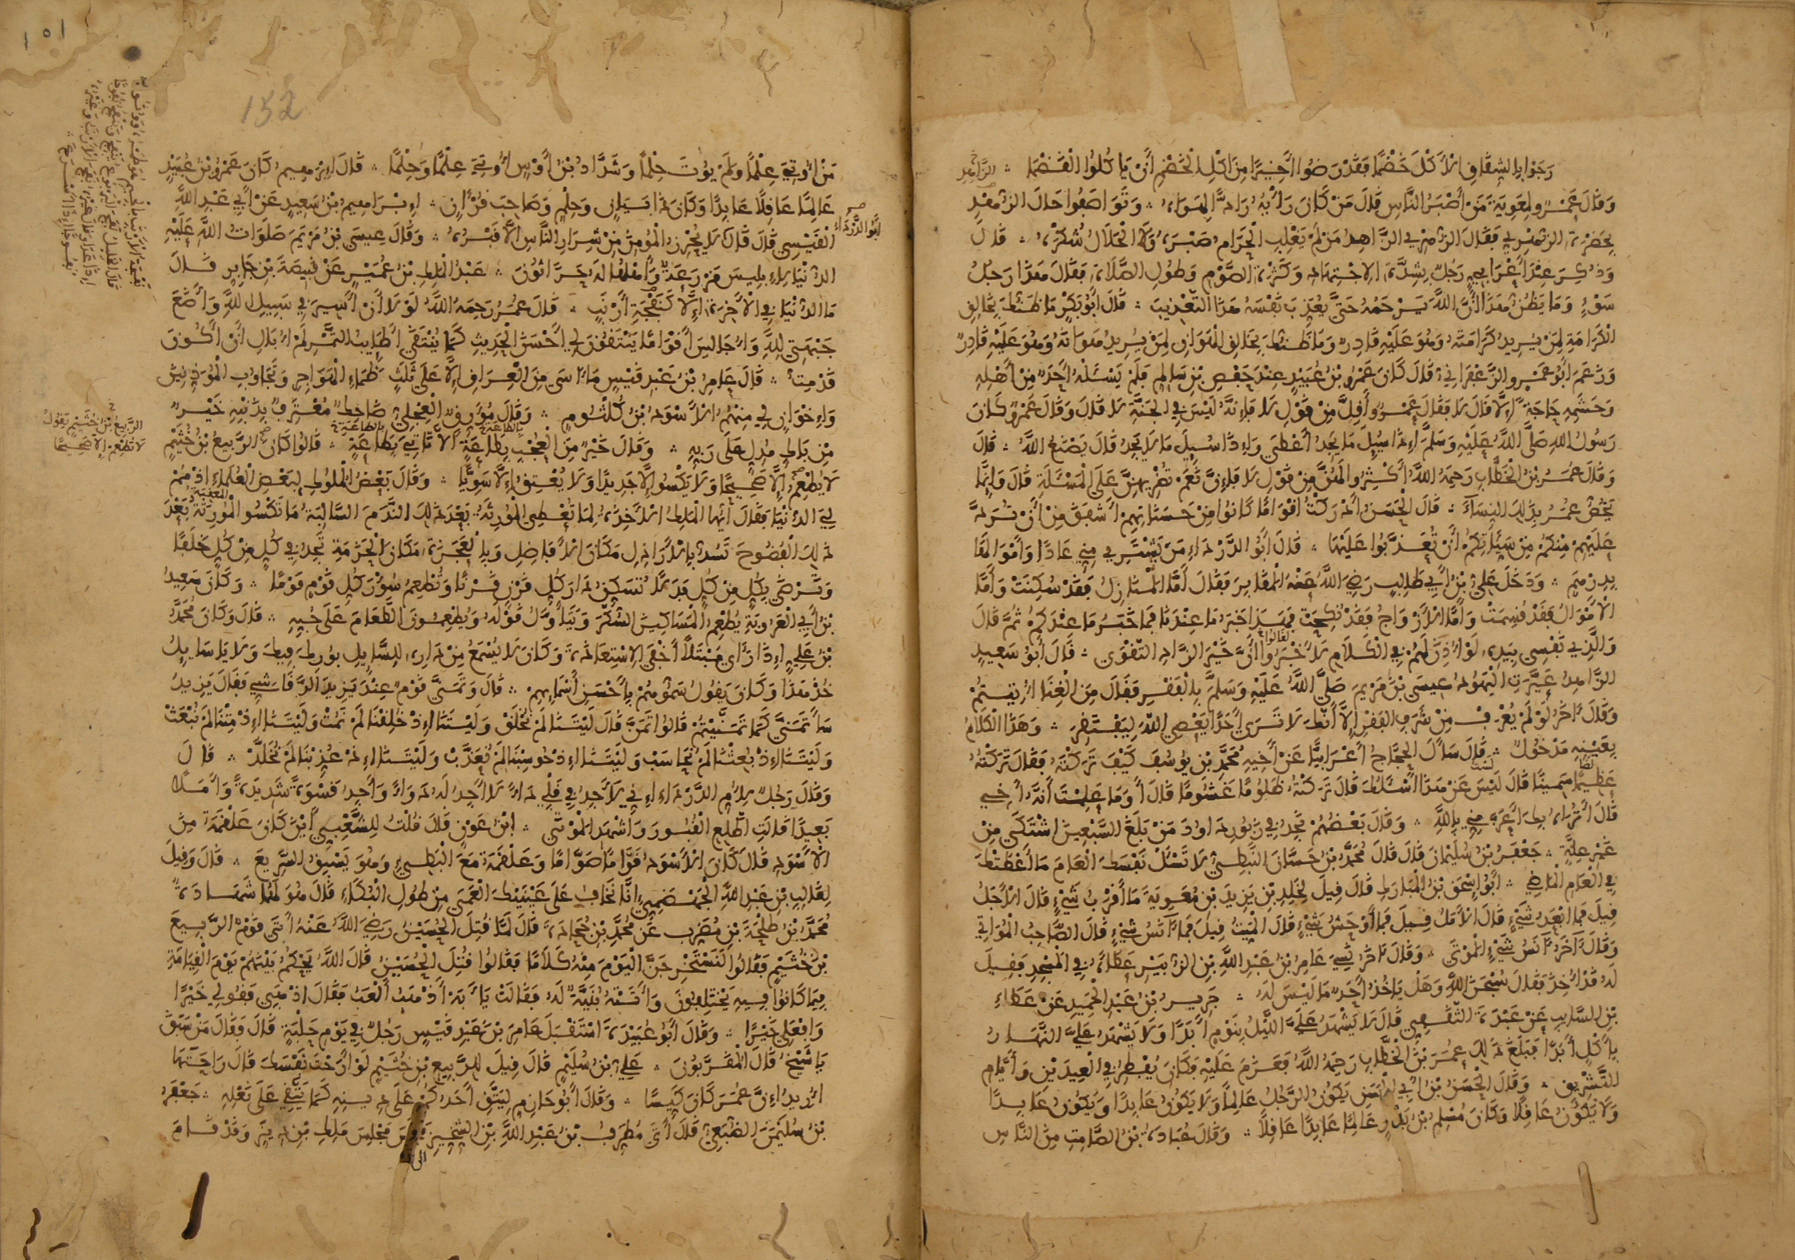 وجوابا لشقاق الأكل خضما فقد رضوا أخيرا من أكل الخضم أن ياكلوا القضما
وقال عمرو لمعوية من أصبر الناس قال من كان رأيه رادا لهواه وتواصفوا حال الزاهد
بحضرة الزهري فقال الزهري الزاهد من لم يغلب الحرام صبره ولا الحلال شكره قال
وذكر عند أعرابي رجل بشدة الاجتهاد وكثرة الصوم وطول الصلاة فقال هذا رجل
سوء وما يظن هذا أن الله يرحمه حتى يعذب نفسه هذا التعذيب قال أبو بكر ما ظنك بخالق
الكرامة لمن يريد كرامته وهو عليه قادر وما ظنك بخالق الهوان لمن يريد هوانه وهو عليه قادر
وزعم أبو عمرو الزعفراني قال كان عمرو بن عبيد عند حفص بن سالم فلم يسئله أحد من أهله
وحشمه حاجة إلا قال لا فقال عمرو أقل من قول لا فإنه ليس في الجنة لا قال وقال عمرو كان
رسول الله صلى الله عليه وسلم إذا سيل ما يجد أعطى وإذا سيل ما لا يجد قال يصنع الله قال
وقال عمر بن الخطاب رحمه الله أكثروا لهن من قول لا فإن نعم تضريهن على المسئلة قال وإنما
يخص عمر بذلك النساء قال الحسن أدركت أقواما كانوا من حسناتهم أشفق من أن ترد
عليهم منكم من سياتكم أن تعذبوا عليها قال أبو الدرداء من يشتري مني عادا وأموالها
بدرهم ودخل علي بن أبي طالب رضي الله عنه المقابر فقال أما المنازل فقد سكنت وأما
الأموال فقد قسمت وأما الأزواج فقد نكحت فهذا خبر ما عندنا فما خبر ما عندكم ثم قال
والذي نفسي بيده لو أذن لهم في الكلام لأخبروا أن خير الزاد التقوى قال أبو سعيد
الزاهد عيرت اليهود عيسى بن مريم صلى الله عليه وسلم بالفقر فقال من الغنا أتيتم
وقال آخر لو لم يعرف من شرف الفقر إلا أنك لا ترى أحدا يعصي الله ليفتقر وهذا الكلام
بعينه مدخول قال سأل الحجاج أعرابيا عن أخيه محمد بن يوسف كيف تركته فقال تركته
عظيما سمينا قال ليس عن هذا أسئلك قال تركته ظلوما غشوما قال أوما علمت أنه أخي
قال أتراه بك أعز مني بالله وقال بعضهم نجد في زبور داود من بلغ السبعين اشتكى من
غير علة جعفر بن سليمان قال قال محمد بن حسان النبطي لا تسئل نفسك العام ما أعطتك
في العام الماضي أبو إسحق بن المبارك قال قيل لخلد بن يزيد بن معوية ما أقرب شيء قال الأجل
قيل فما أبعد شيء قال الأمل قيل فما أوحش شيء قال الميت قيل فما آنس شيء قال الصاحب المواتي
وقال آخر آنس شيء الموتى وقال آخر نسي عامر بن عبد الله بن الزبير عطاءه في المسجد فقيل
له قد أخذ فقال سبحن الله وهل ياخذ أحد ما ليس له جرير بن عبد الحميد عن عطاء
بن السايب عن عبدة الثقفي قال لا يشهد علي الليل بنوم أبدا ولا يشهد علي النهار
بأكل أبدا فبلغ ذلك عمر بن الخطاب رحمه الله فعزم عليه فكان يفطر في العيدين وأيام
التشريق وقال الحسن بن أبي الحسن يكون الرجل عالما ولا يكون عابدا ويكون عابدا
ولا يكون عاقلا وكان مسلم بن بدر عالما عابدا عاقلا وقال عبادة بن الصامت من الناس
١٥١
152
من أوتي علما ولم يوت حلما وشداد بن أوس أوتي علما وحلما قال إبرهيم كان عمرو بن عبيد
عالما عاقلا عابدا وكان ذا بيان وحلم وصاحب قرآن إبرهيم بن سعيد عن أبي عبد الله
القيسي قال قال أبو الدرداء لا يحرز المؤمن من شرار الناس إلا قبره وقال عيسى بن مريم صلوات الله عليه
الدنيا لإبليس مزرعة وأهلها له حراثون عبد الملك بن عمير عن قبيصة بن جابر قال
ما الدنيا في الآخرة إلا كنفجة أرنب قال عمر رحمه الله لولا أن أسير في سبيل الله وأضع
جبهتي لله وأجالس أقواما ينتقون لي أحسن الحديث كما ينتقى أطايب التمر لم أبال أن أكون
قد مت قال عامر بن عبد قيس ما آسى من العراق إلا على ثلث ظماء الهواجر وتجاوب الموذنين
وإخوان لي منهم الأسود بن كلثوم وقال مورق العجلي ضاحك معترف بذنبه خير
من باك مدل على ربه وقال خير من العجب بالطاعة ألا تأتي بطاعة قالوا كان الربيع بن خثيم
لا يطعم إلا صحيحا ولا يكسو إلا جديدا ولا يعتق إلا سويا وقال بعض الملوك لبعض العلماء اذمم
لي الدنيا فقال أيها الملك الآخذة لما تعطي المورثة بعد ذلك الندم السالبة ما تكسو المورثة بعد
ذلك الفضوح تسد بالأراذل مكان الأفاضل وبالعجزة مكان الحزمة تجد في كل من كل خلفا
وترضى بكل من كل بدلا تسكن دار كل قرن قرنا وتطعم سؤر كل قوم قوما وكان سعيد
بن أبي العروبة يطعم المساكين السكر ويتأول قوله ويطعمون الطعام على حبه قال وكان محمد
بن علي إذا رأى مبتلا أخفى الاستعاذة وكان لا يسمع من داره للسايل بورك فيك ولا يا سايل
خذ هذا وكان يقول سموهم بأحسن أسمايهم قال وتمنى قوم عند يزيد الرقاشي فقال يزيد
سأتمنى كما تمنيتم قالوا تمن قال ليتنا لم نخلق وليتنا إذ خلقنا لم نمت وليتنا إذ متنا لم نبعث
وليتنا إذ بعثنا لم نحاسب وليتنا إذ حوسبنا لم نعذب وليتنا إذ عذبنا لم نخلد قال
وقال رجل لأم الدرداء إني لأجد في قلبي داء لا أجد له دواء وأجد قسوة شديدة وأملا
بعيدا قالت اطلع القبور واشهد الموتى ابن عون قال قلت للشعبي أين كان علقمة من
الأسود قال كان الأسود قواما صواما وعلقمة مع البطيء وهو يسبق السريع قال وقيل
لغالب بن عبد الله الجهضمي إنا نخاف على عينيك العمى من طول البكاء قال هو لها شهادة
محمد بن طلحة بن مصرف عن محمد بن جحادة قال لما قتل الحسين رضي الله عنه أتى قوم الربيع
بن خثيم فقالوا لنستخرجن اليوم منه كلاما فقالوا قتل الحسين قال الله يحكم بينهم يوم القيامة
فيما كانوا فيه يختلفون وأتته بنية له فقالت يا أبة أذهب ألعب فقال اذهبي فقولي خيرا
وافعلي خيرا وقال أبو عبيدة استقبل عامر بن عبد قيس رجل في يوم حلبة قال وقال من سبق
يا شيخ قال المقربون علي بن سليم قال قيل للربيع بن خثيم لو أرحت نفسك قال راحتها
أريد إن عمر كان كيسا وقال أبو حازم ليتق أحدكم على دينه كما يتقي على نعله جعفر
بن سليمن الضبعي قال أتى مطرف بن عبد الله بن الشخير مجلس ملك بن دينر وقد قام
الربيع بن خثيم يقول
لا تطعم إلا صحيحا